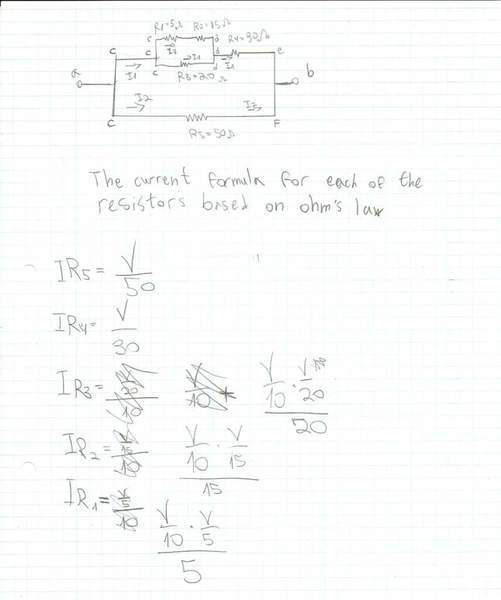 R1=5Ω R2=15Ω
c d R4=30Ω
c c I1 d e
a I1 c I1 d I1 b
R3=20Ω
I2 I2
c F
R5=50Ω
The current formula for each of the
resistors based on ohm's law
IR5 = V/50
IR4= V/30
IR3= V/10 · V/20 / 20
IR2= V/10 · V/15 / 15
IR1= V/10 · V/5 / 5